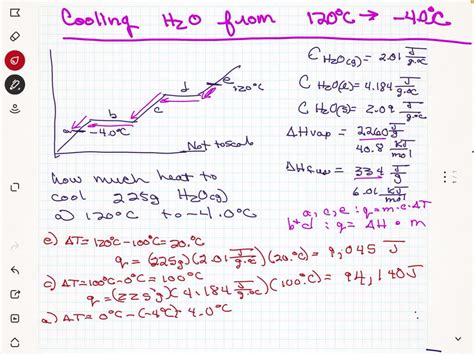 Cooling H2O from 120°C → -4.0°C
C H2O(g) = 2.01 J/g·°C
C H2O(l) = 4.184 J/g·°C
C H2O(s) = 2.09 J/g·°C
ΔHvap = 2260 J/g
40.8 KJ/mol
ΔHfus = 334 J/g
6.01 KJ/mol
e
120°C
d
c
b
a
-4.0°C
Not to scale
How much heat to
cool 225g H2O(g)
a) 120°C to -4.0°C
a, c, e : q = m·c·ΔT
b + d : q = ΔH · m
e) ΔT = 120°C - 100°C = 20.°C
q = (225g)(2.01 J/g·°C)(20.°C) = 9,045 J
c) ΔT = 100°C - 0°C = 100°C
q = (225g)(4.184 J/g·°C)(100.°C) = 94,140 J
a) ΔT = 0°C - (-4°C) = 4.0°C